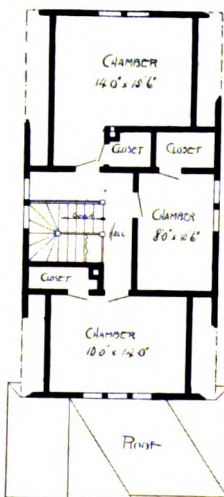 CHAMBER
14'0" x 12'6"
CLOSET
CLOSET
HALL
CHAMBER
8'0" x 10'6"
CLOSET
CHAMBER
10'0" x 14'0"
ROOF